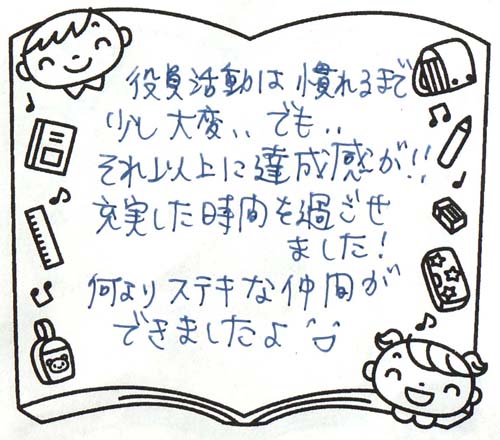 役員活動は慣れるまで
少し大変、、でも、、
それ以上に達成感が!!
充実した時間を過ごせ
ました!
何よりステキな仲間が
できましたよ